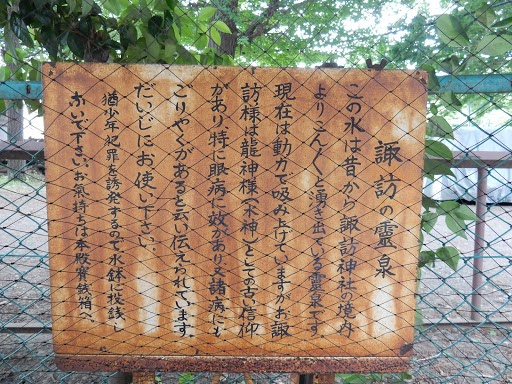 諏訪の霊泉
この水は昔から諏訪神社の境内
よりこんく と湧き出ている霊泉です
現在は動力で吸み上げていますがお諏
訪様は龍神様(水神)としての古い信仰
があり特に眼病に效があり又諸病にも
ごりやくがあると云い伝えられてゐます。
だいじにお使い下さい。
猶少年犯罪を誘発するので水鉢に投銭し
ないで下さい。お気持ちは本殿賽銭箱へ。